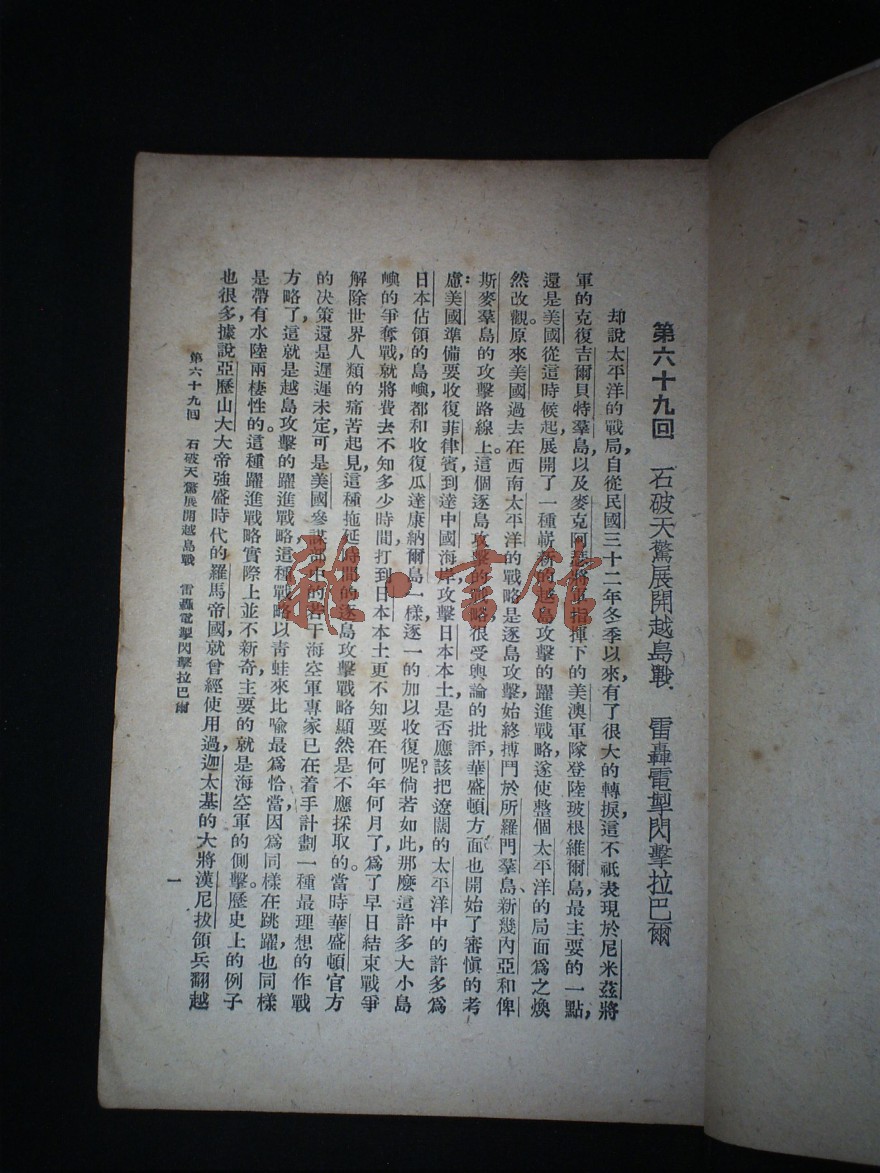 第六十九回 石破天驚展開越島戰 雷轟電掣閃擊拉巴爾
却說太平洋的戰局，自從民國三十二年冬季以來，有了很大的轉捩，這不祇表現於尼米茲將
軍的克復吉爾貝特羣島，以及麥克阿瑟將軍指揮下的美澳軍隊登陸玻根維爾島，最主要的一點，
還是美國從這時候起，展開了一種嶄新的越島攻擊的躍進戰略，遂使整個太平洋的局面爲之煥
然改觀。原來美國過去在西南太平洋的戰略是逐島攻擊，始終搏鬥於所羅門羣島、新幾內亞和俾
斯麥羣島的攻擊路線上。這個逐島攻擊的戰略，很受輿論的批評，華盛頓方面也開始了審愼的考
慮：美國準備要收復菲律賓，到達中國海岸，攻擊日本本土，是否應該把遼闊的太平洋中的許多爲
日本佔領的島嶼，都和收復瓜達康納爾島一樣，逐一的加以收復呢？倘若如此，那麼這許多大小島
嶼的爭奪戰，就將費去不知多少時間，打到日本本土更不知要在何年何月了，爲了早日結束戰爭，
解除世界人類的痛苦起見，這種拖延時間的逐島攻擊戰略，顯然是不應採取的。當時華盛頓官方
的决策還是遲遲未定，可是美國參謀部中的若干海空軍專家，已在着手計劃一種最理想的作戰
方略了，這就是越島攻擊的躍進戰略，這種戰略以青蛙來比喩最爲恰當，因爲同樣在跳躍，也同樣
是帶有水陸兩棲性的。這種躍進戰略實際上並不新奇，主要的就是海空軍的側擊，歷史上的例子
也很多，據說亞歷山大大帝強盛時代的羅馬帝國，就曾經使用過，迦太基的大將漢尼拔領兵翻越
第六十九回 石破天驚展開越島戰 雷轟電掣閃擊拉巴爾
一
雜·書館